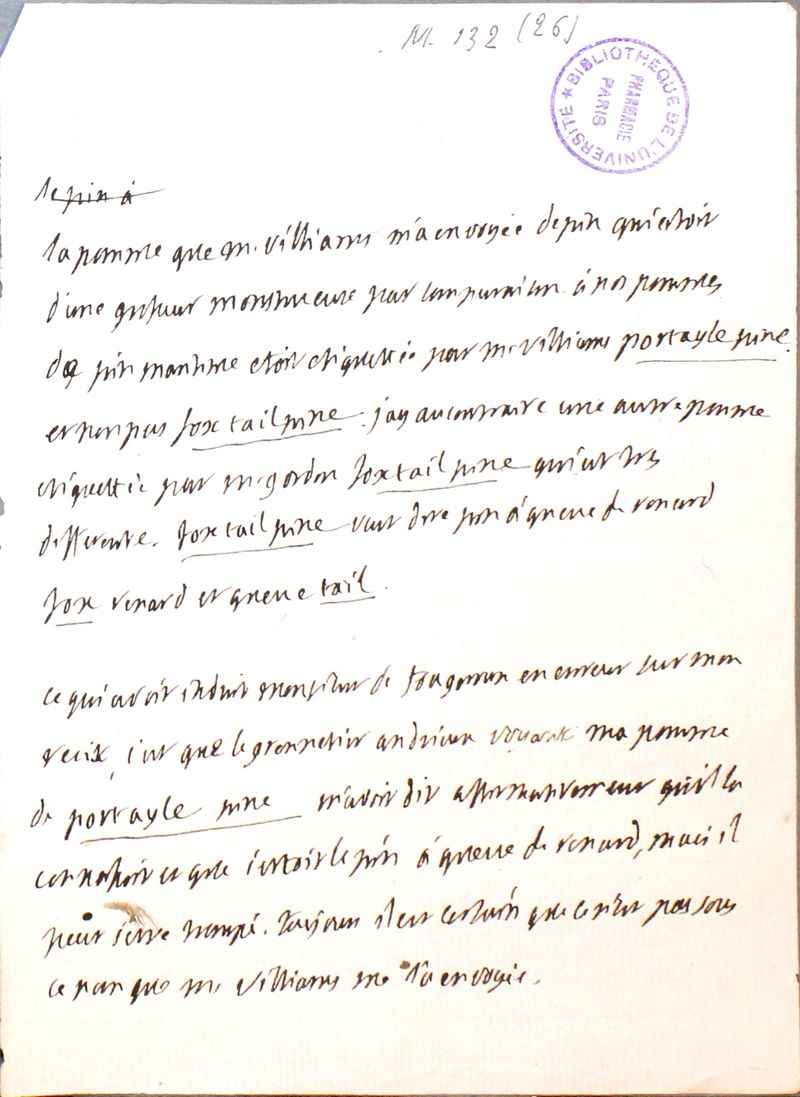 M. 132 (26)
BIBLIOTHEQUE DE L'UNIVERSITÉ ★
PHARMACIE
PARIS
le pin à
la pomme que mr. villiams m'a envoyée de pin qui estoit
d'une grosseur monstrueuse par comparaison à nos pommes
de pin maritime etoit etiquettée par mr villiams portayle pine.
et non pas fox tail pine. j'ay au contraire une autre pomme
etiquettée par mr gordon foxtail pine qui est tres
differente. foxtail pine veut dire pin à queue de renard
fox renard et queue tail.
ce qui avoit induit monsieur de fougeroux en erreur sur mon
recit, c'est que le grennetier andrieux voyant ma pomme
de portayle pine m'avoit dit affirmativement qu'il la
connoissoit et que c'estoit le pin à queue de renard, mais il
peut s'etre trompé. Toujours il est certain que ce n'est pas sous
ce nom que mr villiams me l'a envoyée.